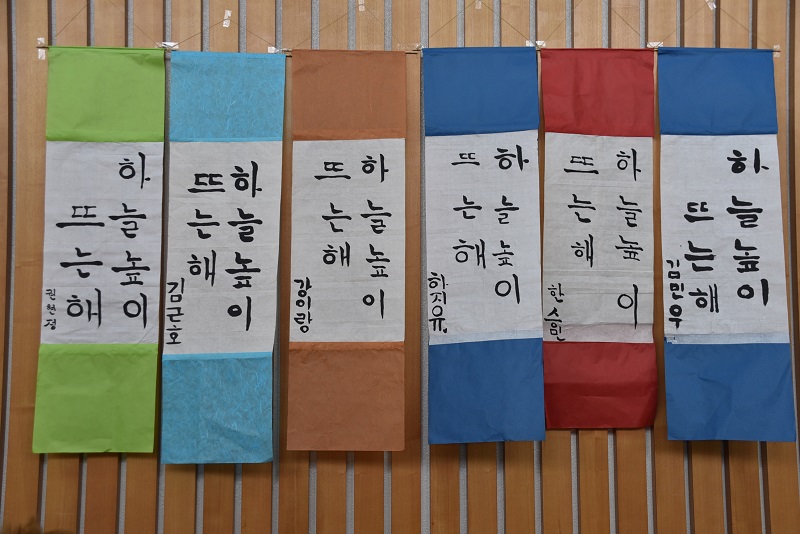 하늘높이
뜨는해
권현정
하늘높이
뜨는해
김근호
하늘높이
뜨는해
강이랑
하늘높이
뜨는해
하지유
하늘높이
뜨는해
한수민
하늘높이
뜨는해
김민우